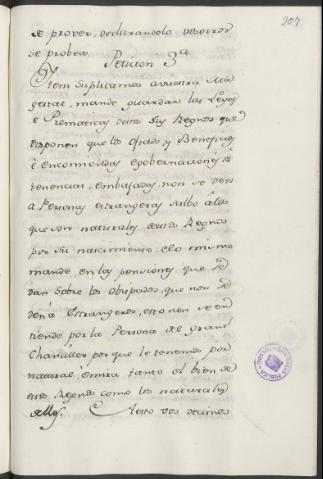 207
se prover, declarandolo vuestros
se probea. Peticion 3ª
Ytem suplicamos a vuestra Ma
gestad, mande guardar las Leyes
e Prematicas destos sus Regnos que
disponen que los ofizios, y Beneficios
e encomiendas egobernaciones e
tenencias, embajadas, non se den
a Personas estrangeras salbo alos
que son naturales destos Regnos
por su nascimiento, elo mismo
mande en las pensiones que se
dan sobre los obispados, que non se
den a Estrangeros, esto non se en
tiende por la Persona del gran
Chanciller por que le tenemos por
natural, e mira tanto el bien de
estos Regnos como los naturales
dellos. Aesto vos decimos